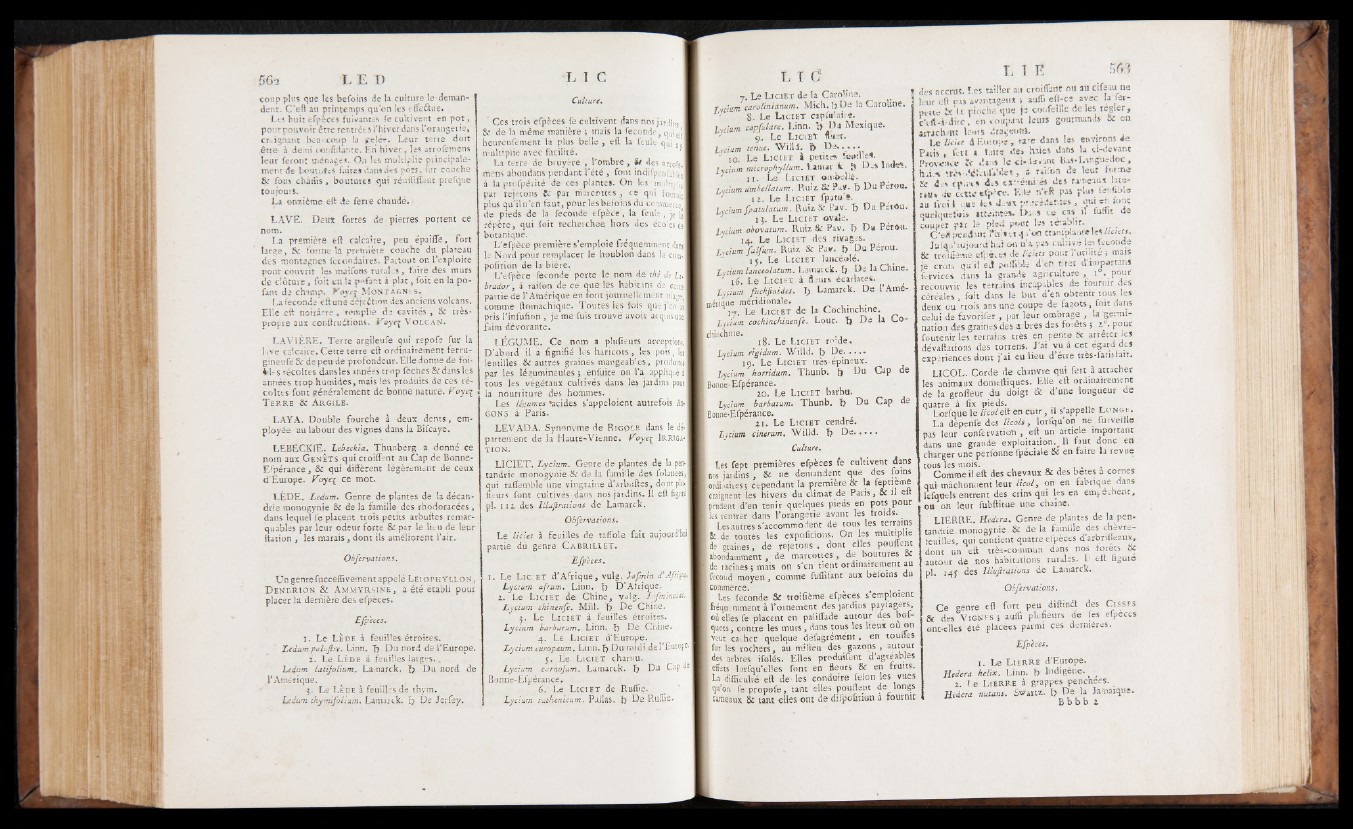 562 LED
coup plus que les befoins de la culture le demandent.
C'eft au printemps qu'on les effectue.
Les huit efpèces fuivantes fe cultivent en pot,
pour pouvoir être rentrées l'hiver dans l'orangerie,
craignant beaucoup la gelée. Leur terre doit
être à demi confiftante. En hiver, les arrofemens
leur feront ménagés. On les multiplie principalement
de boutures faites dans des pots, fur couche
& fous châffis, boutures qui réuffiffent prefque
toujours.
La onzième eft de ferre chaude.
LAVE. Deux fortes de pierres portent ce
nom.
La première eft calcaire, peu épaiffe, fort
large, & forme la première couche du plateau
des montagnes fecondaires. Partout on l'exploite
pour couvrir les maifons rurales, faire des murs
de clôture, foit en la pofant à plat, foit en la pofant
de champ. Voyez MONTAGNES.
La feconde eft une déjection des anciens volcans.
Elle eft noirâtre, remplie de cavités, & très-
propre aux conftructions. Voyez VOLCAN.
LAVIÈRE. Terre argileufe qui repofe fur la
lave calcaire. Cette terre eft ordinairement ferrugineufe
& de peu de profondeur. Elle donne de foibles
récoltes dans les années trop fèches & dans les
années trop humides, mais les produits de ces récoltes
font généralement de bonne nature. Voyez
TERRE & ARGILE.
LAYA. Double fourche à deux dents, employée
au labour des vignes dans la Bifcaye.
LEBECKIE. Lebeckia. Thunberg a donné ce
nom aux GENÊTS qui croiffent au Cap de Bonne-
Efpérance, & qui diffèrent légèrement de ceux
d'Europe. Voyez ce mot.
LÈDE. Ledum. Genre de plantes de la décandrie
monogynie & de la famille des rhodoracées,
dans lequel fe placent trois petits arbuftes remarquables
par leur odeur forte & par le lieu de leur
ftation, les marais, dont ils améliorent l'air.
Obfervations.
Un genre fucceffivement appelé LEIOPHYLLON,
DENDRION & AMMYRSINE, a été établi pour
placer la dernière des efpèces.
Efpèces.
1. Le LÈDE à feuilles étroites.
Ledum paluftre. Linn. ♄ Du nord de l'Europe.
2. Le LÈDE à feuilles larges.
Ledum latifolium. Lamarck. ♄ Du nord de
l'Amérique.
3. Le LÈDE à feuilles de thym.
Ledum thymifolium. Lamarck. ♄ De Jerfey.
LIC
Culture.
Ces trois efpèces fe cultivent dans nos jardins
& de la même manière; mais la feconde, qui eft
heureufement la plus belle, eft la feule qui s'y
multiplie avec facilité.
La terre de bruyère, l'ombre, & des arrofemens
abondans pendant l'été, font indifpenfables
à la profpérité de ces plantes. On les multiplie
par rejetons & par marcottes, ce qui fournit
plus qu'il n'en faut, pour les befoins du commerce,
de pieds de la feconde efpèce, la feule, je le
répète, qui foit recherchée hors des écoles de
botanique.
L'efpèce première s'emploie fréquemment dans
le Nord pour remplacer le houblon dans la compofition
de la bière.
L'efpèce feconde porte le nom de thé de Labrador,
à raifon de ce que les habitans de cette
partie de l'Amérique en font journellement ufage,
comme ftomachique. Toutes les fois que j'en ai
pris l'infufion, je me fuis trouvé avoir acquis une
faim dévorante.
LÉGUME. Ce nom a plufieurs acceptions.
D'abord il a fignifié les haricots, les pois, les
lentilles & autres graines mangeables, produites
par les légumineufes; enfuite on l'a appliqué à
tous les végétaux cultivés dans les jardins pour
la nourriture des hommes.
Les légumes acides s'appeloient autrefois
à Paris.
LEVADA. Synonyme de RIGOLE dans le département
de la Haute-Vienne. Voyez IRRIGATION.
LICIET. Lycium. Genre de plantes de la pentandrie
monogynie & de la famille des folanées,
qui raffemble une vingtaine d'arbuftes, dont plufieurs
font cultivés dans nos jardins. Il eft figuré
pl. 112 des Illuftrations de Lamarck.
Obfervations.
Le liciet à feuilles de taffole fait aujourd'hui
partie du genre CABRILLET.
Efpèces.
1. Le LICIET d'Afrique, vulg. Jafmin d'Afrique.
Lycium afrum. Linn. ♄ D'Afrique.
2. Le LICIET de Chine, vulg.
Lycium chinenfe. Mill. ♄ De Chine.
3. Le LICIET à feuilles étroites.
Lycium barbarum. Linn. ♄ De Chine.
4. Le LICIET d'Europe.
Lycium europæum. Linn. ♄ Du midi de l'Europe.
5. Le LICIET charnu.
Lycium carnofum. Lamarck. ♄ Du Cap de
Bonne-Efpérance.
6. Le LICIET de Ruffie.
Lycium ruthenicum. Pallas. ♄ De Ruffie.
LIC
7. Le LICIET de la Caroline.
Lycium carolinianum. Mich. ♄ De la Caroline.
8. Le LICIET capfulaire.
Lycium capfulare. Linn. ♄ Du Mexique.
9. Le LICIET fluet.
Lycium tenue. Willd. ♄ De.....
10. Le LICIET à petites feuilles.
Lycium microphyllum. Lamarck. ♄ Des Indes.
11. Le LICIET ombellé.
Lycium umbellatum. Ruiz & Pav. ♄ Du Pérou.
12. Le LICIET fpatulé.
Lycium fpatulatum. Ruiz & Pav. ♄ Du Pérou.
13. Le LICIET ovale.
Lycium obovatum. Ruiz & Pav. ♄ Du Pérou.
14. Le LICIET des rivages.
Lycium falfum. Ruiz & Pav. ♄ Du Pérou.
15. Le LICIET lancéolé.
Lycium lanceolatum. Lamarck. ♄ De la Chine.
16. Le LICIET à fleurs écarlates.
Lycium fuchfioides. ♄ Lamarck. De l'Amérique
méridionale.
17. Le LICIET de la Cochinchine.
Lycium cochinchinenfe. Lour. ♄ De la Cochinchine.
18. Le LICIET roide.
Lycium rigidum. Willd. ♄ De.....
19. Le LICIET très-épineux.
Lycium horridum. Thunb. ♄ Du Cap de
Bonne-Efpérance.
20. Le LICIET barbu.
Lycium barbatum. Thunb. ♄ Du Cap de
Bonne-Efpérance.
21. Le LICIET cendré.
Lycium cinerum. Willd. ♄ De.....
Culture.
Les fept premières efpèces fe cultivent dans
nos jardins, & ne demandent que des foins
ordinaires; cependant la première & la feptième
craignent les hivers du climat de Paris, & il eft
prudent d'en tenir quelques pieds en pots pour
les rentrer dans l'orangerie avant les froids.
Les autres s'accommodent de tous les terrains
& de toutes les expofitions. On les multiplie
de graines, de rejetons, dont elles pouffent
abondamment, de marcottes, de boutures &
de racines; mais on s'en tient ordinairement au
fecond moyen, comme fuffifant aux befoins du
commerce.
Les feconde & troifième efpèces s'emploient
fréquemment à l'ornement des jardins payfagers,
où elles fe placent en paliffade autour des bofquets,
contre les murs, dans tous les lieux où on
veut cacher quelque défagrément, en touffes
fur les rochers, au milieu des gazons, autour
des arbres ifolés. Elles produifent d'agréables
effets lorfqu'elles font en fleurs & en fruits.
La difficulté eft de les conduire felon les vues
qu'on fe propofe, tant elles pouffent de longs
rameaux & tant elles ont de difpofition à fournir
LIE 563
des accrus. Les tailler au croiffant ou au cifeau ne
leur eft pas avantageux; auffi eft-ce avec la ferpette
& la pioche que je confeille de les régler,
c'eft-à-dire, en coupant leurs gourmands & en
arrachant leurs drageons.
Le liciet d'Europe, rare dans les environs de
Paris, fert à faire des haies dans la ci-devant
Provence & dans le ci-devant Bas-Languedoc,
haies très-défenfables, à raifon de leur forme
& des épines des extrémités des rameaux latéraux
de cette efpèce. Elle n'eft pas plus fenfible
au froid que les deux précédentes, qui en font
quelquefois atteintes. Dans ce cas il fuffit de
couper par le pied pour les rétablir.
C'eft pendant l'hiver qu'on tranfplante les liciets.
Jufqu'aujourd'hui on n'a pas cultivé les feconde
& troifième efpèces de liciets pour l'utilité; mais
je crois qu'il eft poffible d'en tirer d'importans
fervices dans la grande agriculture, 1°. pour
recouvrir les terrains incapables de fournir des
céréales, foit dans le but d'en obtenir tous les
deux ou trois ans une coupe de fagots, foit dans
celui de favorifer, par leur ombrage, la germination
des graines des arbres des forêts; 2°. pour
foutenir les terrains très en pente & arrêter les
dévaftations des torrens. J'ai vu à cet égard des
expériences dont j'ai eu lieu d'être très-fatisfait.
LICOL. Corde de chanvre qui fert à attacher
les animaux domeftiques. Elle eft ordinairement
de la groffeur du doigt & d'une longueur de
quatre à fix pieds.
Lorfque le licol eft en cuir, il s'appelle LONGE.
La dépenfe des licols, lorfqu'on ne furveille
pas leur confervation, eft un article important
dans une grande exploitation. Il faut donc en
charger une perfonne fpéciale & en faire la revue
tous les mois.
Comme il eft des chevaux & des bêtes à cornes
qui mâchonnent leur licol, on en fabrique dans
lefquels entrent des crins qui les en empêchent,
ou on leur fubftitue une chaîne.
LIERRE. Hedera. Genre de plantes de la pentandrie
monogynie & de la famille des chèvrefeuilles,
qui contient quatre efpèces d'arbriffeaux,
dont un eft très-commun dans nos forêts &
autour de nos habitations rurales. Il eft figuré
pl. 145 des Illuftrations de Lamarck.
Obfervations.
Ce genre eft fort peu diftinct des CISSES
& des VIGNES; auffi plufieurs de fes efpèces
ont-elles été placées parmi ces dernières.
Efpèces.
1. Le LIERRE d'Europe.
Hedera helix. Linn. ♄ Indigène.
2. Le LIERRE à grappes penchées.
Hedera nutans. Swartz. ♄ De la Jamaïque.
Bbbb 2